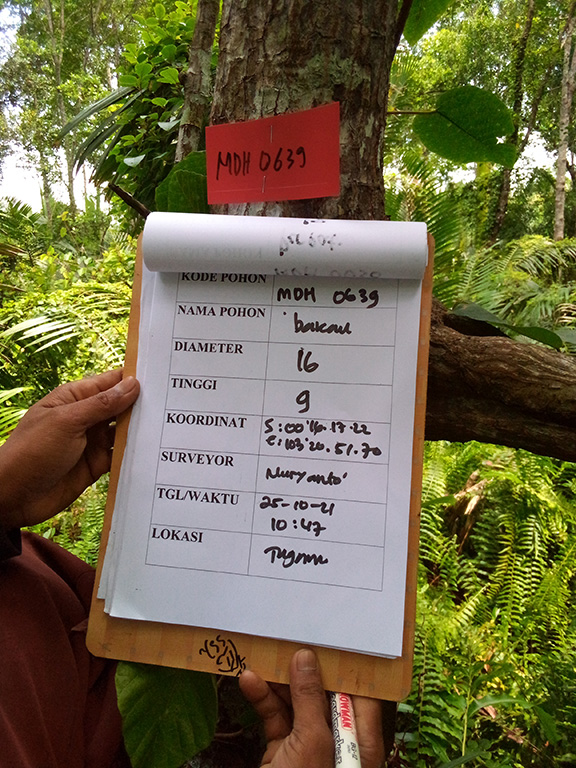 MDH 0639
KODE POHON MDH 0639
NAMA POHON bakau
DIAMETER 16
TINGGI 9
KOORDINAT S:00°16.17.22
E:103°20.51.70
SURVEYOR Nuryanto
TGL/WAKTU 25-10-21
10:47
LOKASI
SNOWMAN